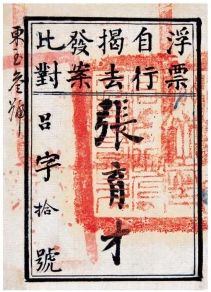 浮票
自行
揭去
發案
比對
張育才
呂字拾號
東